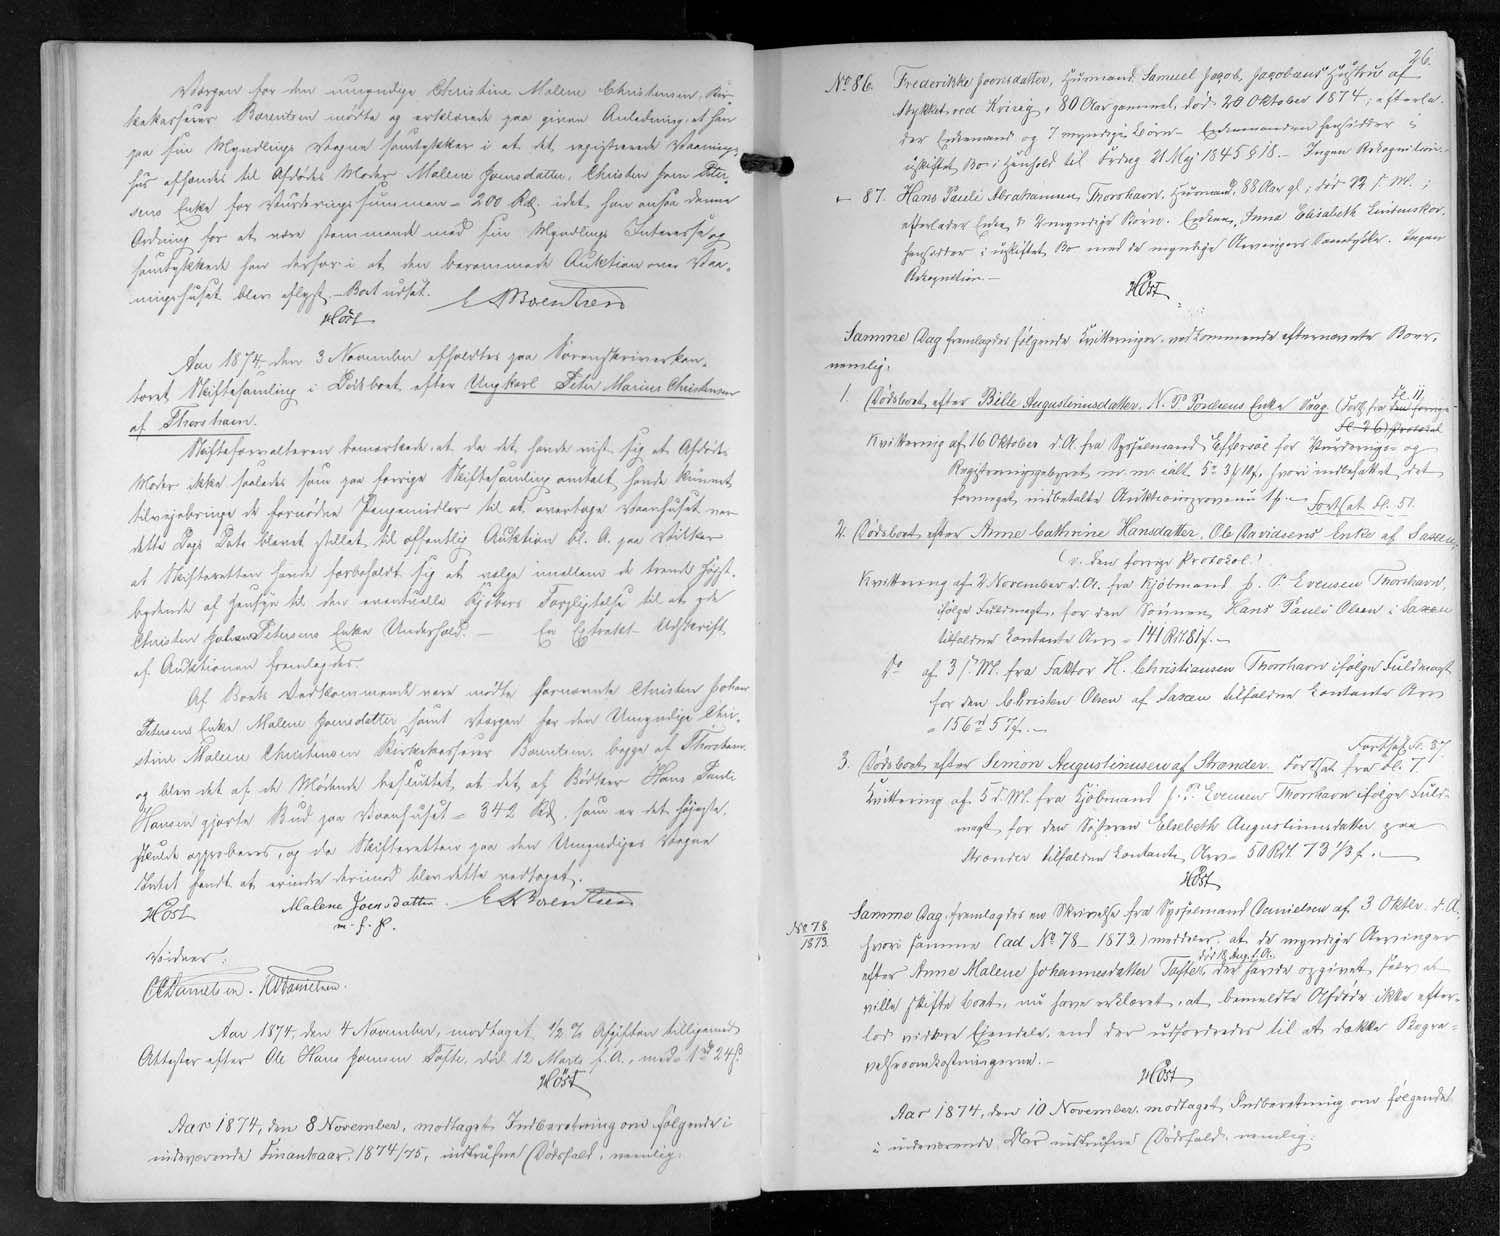 Værgen for den umyndige Christine Malene Christensen, Kir-
kekasserer Bærentsen mødte og erklærede paa given Anledning, at han
paa sin Myndlings Vegne samtykker i at det registrerede Vaanings-
hus afhændes til Afdødes Moder Malene Joensdatter, Christen Joen Peter-
sens Enke for Vurderingssummen = 200 Rd. idet han ansaa denne
Ordning for at være stemmende med sin Myndlings Interesse og
samtykkede han derfor i at den berammede Auktion over Vaa-
ningshuset blev aflyst. — Boet udsat.
Høst E Bærentsen
Aar 1874, den 3 November afholdtes paa Sorenskriverkon-
toret Skiftesamling i Dødsboet efter Ungkarl Peter Marius Christensen
af Thorshavn.
Skifteforvalteren bemærkede, at da det havde vist sig at Afdødes
Moder ikke saaledes som paa forrige Skiftesamling antalt havde kunnet
tilvejebringe de fornødne Pengemidler til at overtage Vaanhuset var
dette Dags Dato blevet stillet til offentlig Auktion bl. A. paa Vilkaar
at Skifteretten havde forbeholdt sig at vælge imellem de trende højst-
bydende af Hensyn til den eventuelle Kjøbers Forpligtelse til at yde
Christen Johan Petersens Enke Underhold. — En Extrakt-Udskrift
af Auktionen fremlagdes.
Af Boets Vedkommende vare mødte fornævnte Christen Johan
Petersens Enke Malene Joensdatter samt Værgen for den Umyndige Chri-
stine Malene Christensen Kirkekasserer Bærentsen, begge af Thorshavn
og blev det af de Mødende besluttet, at det af Bødker Hans Pauli
Hansen gjorte Bud paa Vaanhuset = 342 Rd., som er det højeste,
skulde approberes, og da Skifteretten paa den Umyndiges Vegne
Intet fandt at erindre derimod blev dette vedtaget.
Høst Malene Joensdatter E Bærentsen
m. f. P.
Vidner:
Danielsen. Danielsen.
Aar 1874, den 4 November, modtaget 1/2 % Afgiften tilligemed
Attester efter Ole Hans Jensen Tofte, død 12 Marts f. A., med = 1 rd 24 ß.
Høst
Aar 1874, den 8 November, modtaget Indberetning om følgende i
indeværende Finantsaar, 1874/75, indtrufne Dødsfald, nemlig:
26.
No 86. Frederikke Joensdatter, Huusmand Samuel Jacob Jacobsens Hustru af
Stykket ved Kvivig, 80 Aar gammel, død 20 Oktober 1874; efterla-
der Enkemand og 7 myndige Børn. Enkemanden hensidder i
uskiftet Bo i Henhold til Frdng 21 Maj 1845 § 18. — Ingen Rekognition.
- 87. Hans Pauli Abrahamsen, Thorshavn, Huusmand, 88 Aar gl; død 22 s. M.;
efterlader Enke & 2 myndige Børn. Enken, Anna Elisabeth Lindenskov,
hensidder i uskiftet Bo med de myndige Arvingers Samtykke. Ingen
Rekognition. —
Høst
Samme Dag fremlagdes følgende Kvitteringer vedkommende efternævnte Boer,
nemlig:
1. Dødsboet efter Bille Augustinusdatter, N. P. Poulsens Enke Vaag (Forts fra Fl. 11
den forrige
Fl. 26) Protokol
Kvittering af 16 Oktober d. A. fra Sysselmand Effersøe for Vurderings- og
Registreringsgebyret m. m. ialt 5 rd 3 ß 10 f., hvori indbefattet det
formeget indbetalte Auktionsprovenu 1 ß — Fortsat Fl. 51.
2. Dødsboet efter Anne Cathrine Hansdatter, Ole Davidsens Enke af Saxen,
(v. den forrige Protokol)
Kvittering af 2 November d. A. fra Kjøbmand J. P. Evensen Thorshavn,
ifølge Fuldmagt, for den Sønnen Hans Pauli Olsen i Saxen
tilfaldne kontante Arv = 141 Rd 81 f. —
do af 3 s. M. fra Faktor H. Christiansen Thorshavn ifølge Fuldmagt
for den Christen Olsen af Saxen tilfaldne kontante Arv
= 156 rd 57 f. —
Fortsat Fl. 87.
3. Dødsboet efter Simon Augustinusen af Strønder. Fortsat fra Fl. 7.
Kvittering af 5 d. M. fra Kjøbmand J. P. Evensen Thorshavn ifølge Fuld-
magt for den Søsteren Elsebeth Augustinusdatter paa
Strønder tilfaldne kontante Arv = 50 Rd. 73 1/3 f. —
Høst
No 78
1873
Samme Dag fremlagdes en Skrivelse fra Sysselmand Danielsen af 3 Oktbr. d. A.
hvori samme (ad No 78 — 1873) meddeler, at de myndige Arvinger
død 18 Aug. f. A.
efter Anne Malene Johannesdatter Tofte, der havde opgivet selv at
ville skifte Boet, nu have erklæret, at bemeldte Afdøde ikke efter-
lod videre Ejendele, end der udfordredes til at dække Begra-
velsesomkostningerne. —
Høst
Aar 1874, den 10 November modtaget Indberetning om følgende
i indeværende Aar indtrufne Dødsfald, nemlig: